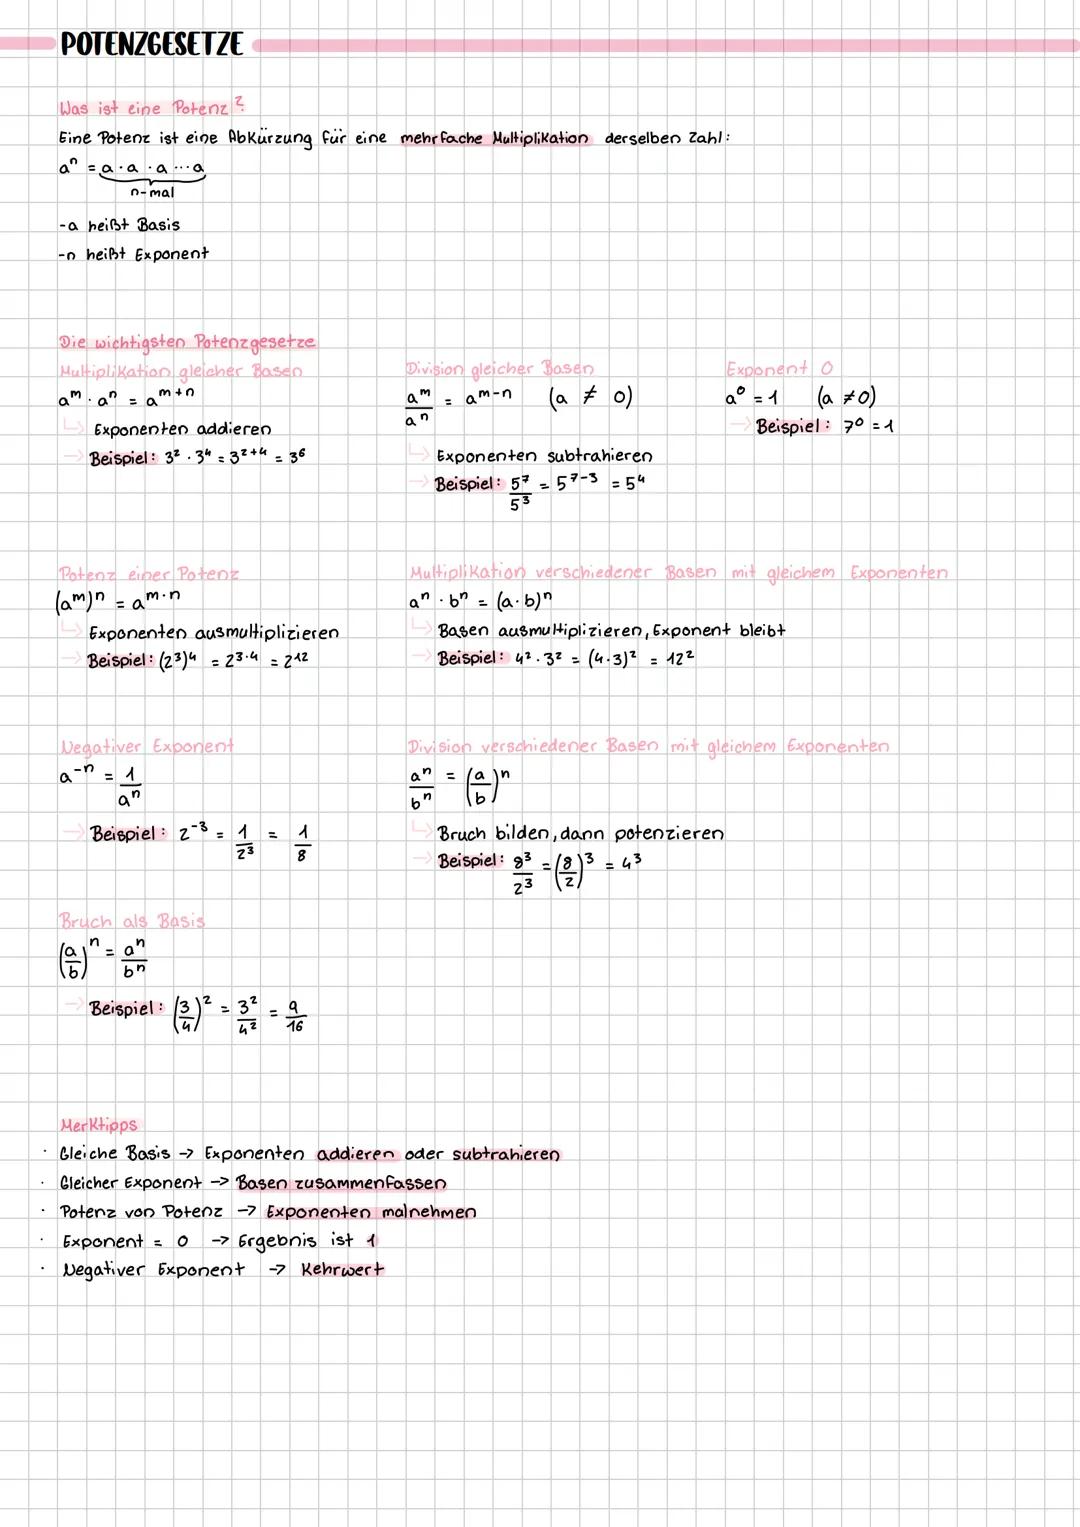 POTENZGESETZE
Was ist eine Potenz?
Eine Potenz ist eine Abkürzung für eine mehrfache Multiplikation derselben Zahl:
aⁿ = a · a · a ··· a
n-mal
-a heißt Basis
-n heißt Exponent
Die wichtigsten Potenzgesetze
Multiplikation gleicher Basen
a^m · a^n = a^(m+n)
↳ Exponenten addieren
→ Beispiel: 3² · 3⁴ = 3²⁺⁴ = 3⁶
Division gleicher Basen
a^m / a^n = a^(m-n) (a ≠ 0)
↳ Exponenten subtrahieren
→ Beispiel: 5⁷/5³ = 5⁷⁻³ = 5⁴
Exponent 0
a⁰ = 1 (a ≠ 0)
→ Beispiel: 7⁰ = 1
Potenz einer Potenz
(a^m)^n = a^(m·n)
↳ Exponenten ausmultiplizieren
→ Beispiel: (2³)⁴ = 2^(3·4) = 2¹²
Multiplikation verschiedener Basen mit gleichem Exponenten
aⁿ · bⁿ = (a·b)ⁿ
↳ Basen ausmultiplizieren, Exponent bleibt
→ Beispiel: 4² · 3² = (4·3)² = 12²
Negativer Exponent
a⁻ⁿ = 1/aⁿ
→ Beispiel: 2⁻³ = 1/2³ = 1/8
Division verschiedener Basen mit gleichem Exponenten
aⁿ/bⁿ = (a/b)ⁿ
↳ Bruch bilden, dann potenzieren
→ Beispiel: 8³/2³ = (8/2)³ = 4³
Bruch als Basis
(a/b)ⁿ = aⁿ/bⁿ
→ Beispiel: (3/4)² = 3²/4² = 9/16
Merktipps
· Gleiche Basis → Exponenten addieren oder subtrahieren
· Gleicher Exponent → Basen zusammenfassen
· Potenz von Potenz → Exponenten malnehmen
· Exponent = 0 → Ergebnis ist 1
· Negativer Exponent → Kehrwert